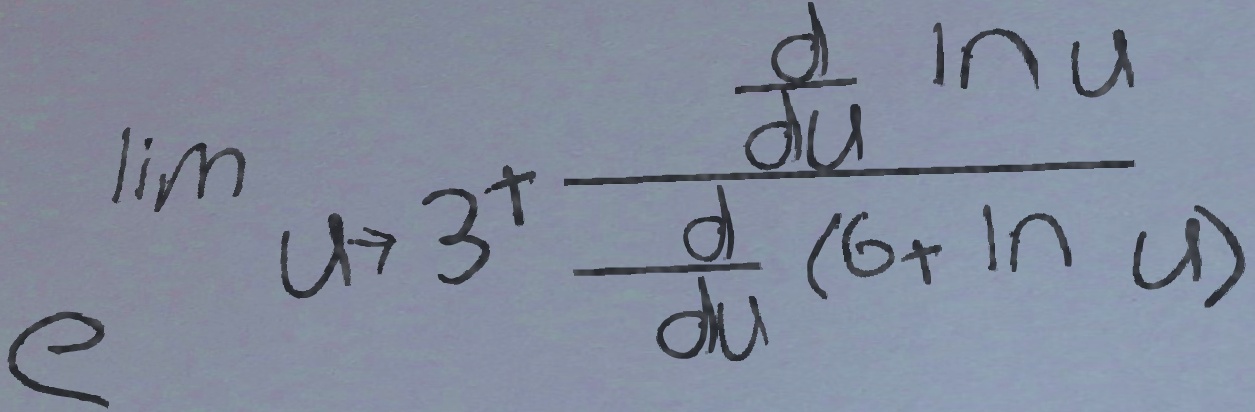 e^{\lim_{u \to 3^+} \frac{\frac{d}{du} \ln u}{\frac{d}{du} (6 + \ln u)}}